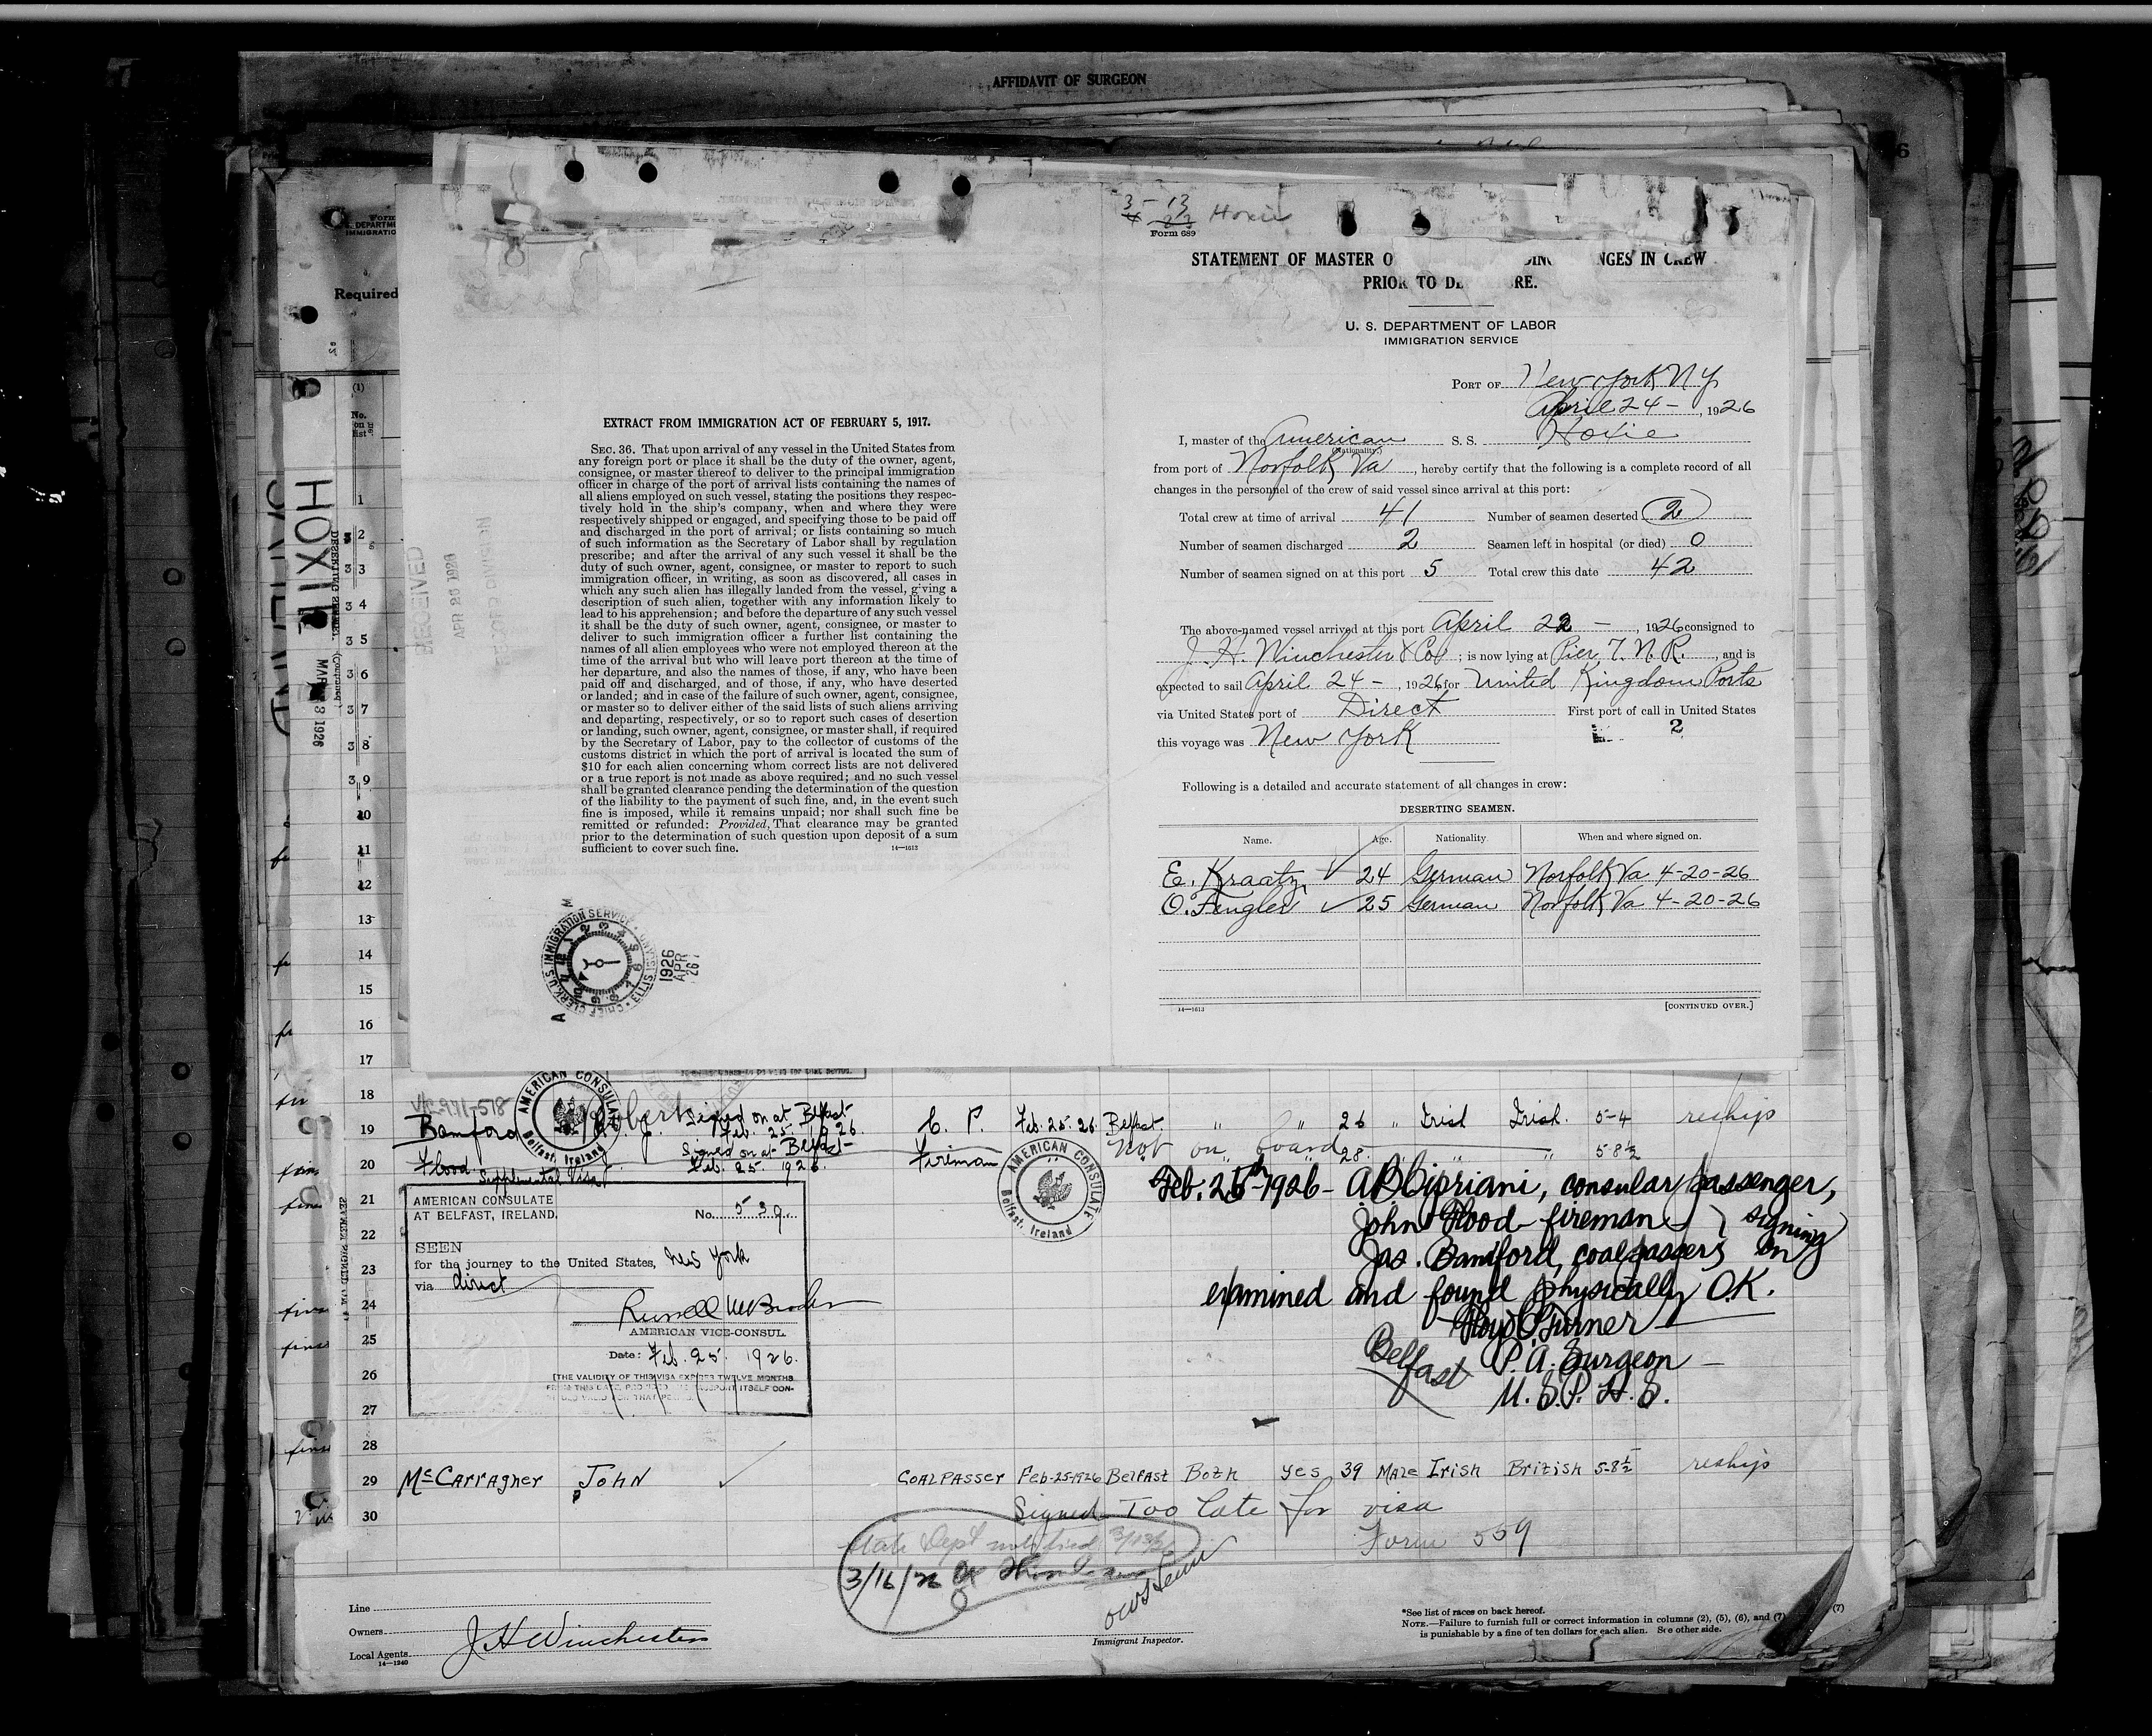 AFFIDAVIT OF SURGEON
6
3 - 13
Hoxie
Form 689
STATEMENT OF MASTER O NGES IN CREW
PRIOR TO DE RE.
U. S. DEPARTMENT OF LABOR
IMMIGRATION SERVICE
PORT OF New York N Y.
April 24 - , 1926
I, master of the American S. S. Hoxie
(Nationality.)
from port of Norfolk Va , hereby certify that the following is a complete record of all
changes in the personnel of the crew of said vessel since arrival at this port:
Total crew at time of arrival 41 Number of seamen deserted 2
Number of seamen discharged 2 Seamen left in hospital (or died) 0
Number of seamen signed on at this port 5 Total crew this date 42
The above-named vessel arrived at this port April 22 - , 1926 consigned to
J. H. Winchester & Co ; is now lying at Pier 7. N. R. , and is
expected to sail April 24 - , 1926, for United Kingdom Ports
via United States port of Direct First port of call in United States
this voyage was New York 2
Following is a detailed and accurate statement of all changes in crew:
DESERTING SEAMEN.
Name. Age. Nationality When and where signed on.
E. Kraatz 24 German Norfolk Va 4-20-26
O. Fengler 25 German Norfolk Va 4-20-26
14—1613
[CONTINUED OVER.]
EXTRACT FROM IMMIGRATION ACT OF FEBRUARY 5, 1917.
SEC. 36. That upon arrival of any vessel in the United States from
any foreign port or place it shall be the duty of the owner, agent,
consignee, or master thereof to deliver to the principal immigration
officer in charge of the port of arrival lists containing the names of
all aliens employed on such vessel, stating the positions they respec-
tively hold in the ship's company, when and where they were
respectively shipped or engaged, and specifying those to be paid off
and discharged in the port of arrival; or lists containing so much
of such information as the Secretary of Labor shall by regulation
prescribe; and after the arrival of any such vessel it shall be the
duty of such owner, agent, consignee, or master to report to such
immigration officer, in writing, as soon as discovered, all cases in
which any such alien has illegally landed from the vessel, giving a
description of such alien, together with any information likely to
lead to his apprehension; and before the departure of any such vessel
it shall be the duty of such owner, agent, consignee, or master to
deliver to such immigration officer a further list containing the
names of all alien employees who were not employed thereon at the
time of the arrival but who will leave port thereon at the time of
her departure, and also the names of those, if any, who have been
paid off and discharged, and of those, if any, who have deserted
or landed; and in case of the failure of such owner, agent, consignee,
or master so to deliver either of the said lists of such aliens arriving
and departing, respectively, or so to report such cases of desertion
or landing, such owner, agent, consignee, or master shall, if required
by the Secretary of Labor, pay to the collector of customs of the
customs district in which the port of arrival is located the sum of
$10 for each alien concerning whom correct lists are not delivered
or a true report is not made as above required; and no such vessel
shall be granted clearance pending the determination of the question
of the liability to the payment of such fine, and, in the event such
fine is imposed, while it remains unpaid; nor shall such fine be
remitted or refunded: Provided, That clearance may be granted
prior to the determination of such question upon deposit of a sum
sufficient to cover such fine.
14—1613
RECEIVED
APR 26 1926
CHIEF CLERK U.S. IMMIGRATION SERVICE
1926
APR
26
Form
Required
(1)
No.
on
list
HOXIE
MAR 13 1926
1
2
3
4
5
6
7
8
9
10
11
12
13
14
15
16
17
18
19 Bamford Signed on at Belfast Feb. 25 1926 C. P. Feb. 25. 26. Belfast " " 26 " Irish Irish. 5-4 reship
20 Flood Signed on at Belfast Feb. 25 1926. Fireman Not on board 28. " " 5-8½
Supplemental Visa
AMERICAN CONSULATE
Belfast, Ireland
AMERICAN CONSULATE
Belfast, Ireland
21
22
23
24
25
26
27
28
AMERICAN CONSULATE
AT BELFAST, IRELAND.
No. 539.
SEEN
for the journey to the United States, New York
via direct
AMERICAN VICE-CONSUL.
Date: Feb. 25. 1926.
[THE VALIDITY OF THIS VISA EXPIRES TWELVE MONTHS
Feb. 25th 1926 - A B Cipriani, consular passenger,
John Flood - fireman } signing
Jas. Bamford, coalpasser } on
examined and found physically O.K.
Turner
Belfast P. A. Surgeon
U. S. P. H. S.
29 McCarragher John COALPASSER Feb-25-1926 Belfast Both yes 39 Male Irish British 5-8½ reship
30 Signed Too late for visa
Form 559
State Dept notified 3/13/26
3/16/26
Immigrant Inspector.
Line
Owners
J H Winchester
Local Agents
14—1240
*See list of races on back hereof.
NOTE.—Failure to furnish full or correct information in columns (2), (5), (6), and (7)
is punishable by a fine of ten dollars for each alien. See other side.
(7)